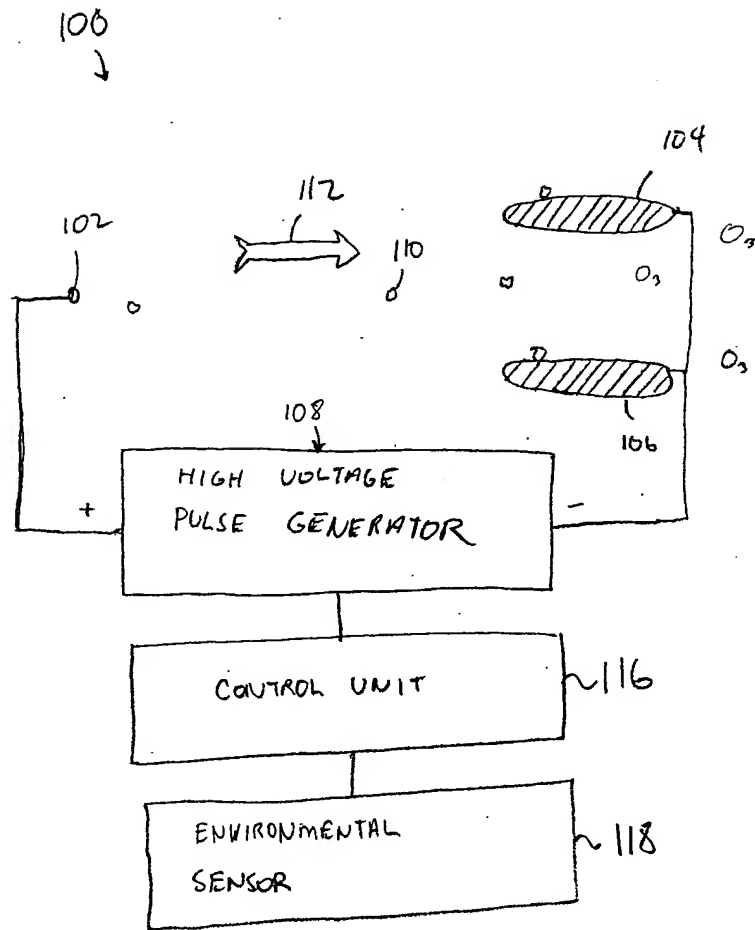 100
104
112
102
110
O3
O3
O3
106
108
HIGH VOLTAGE
+
PULSE GENERATOR
-
CONTROL UNIT
116
ENVIRONMENTAL
118
SENSOR